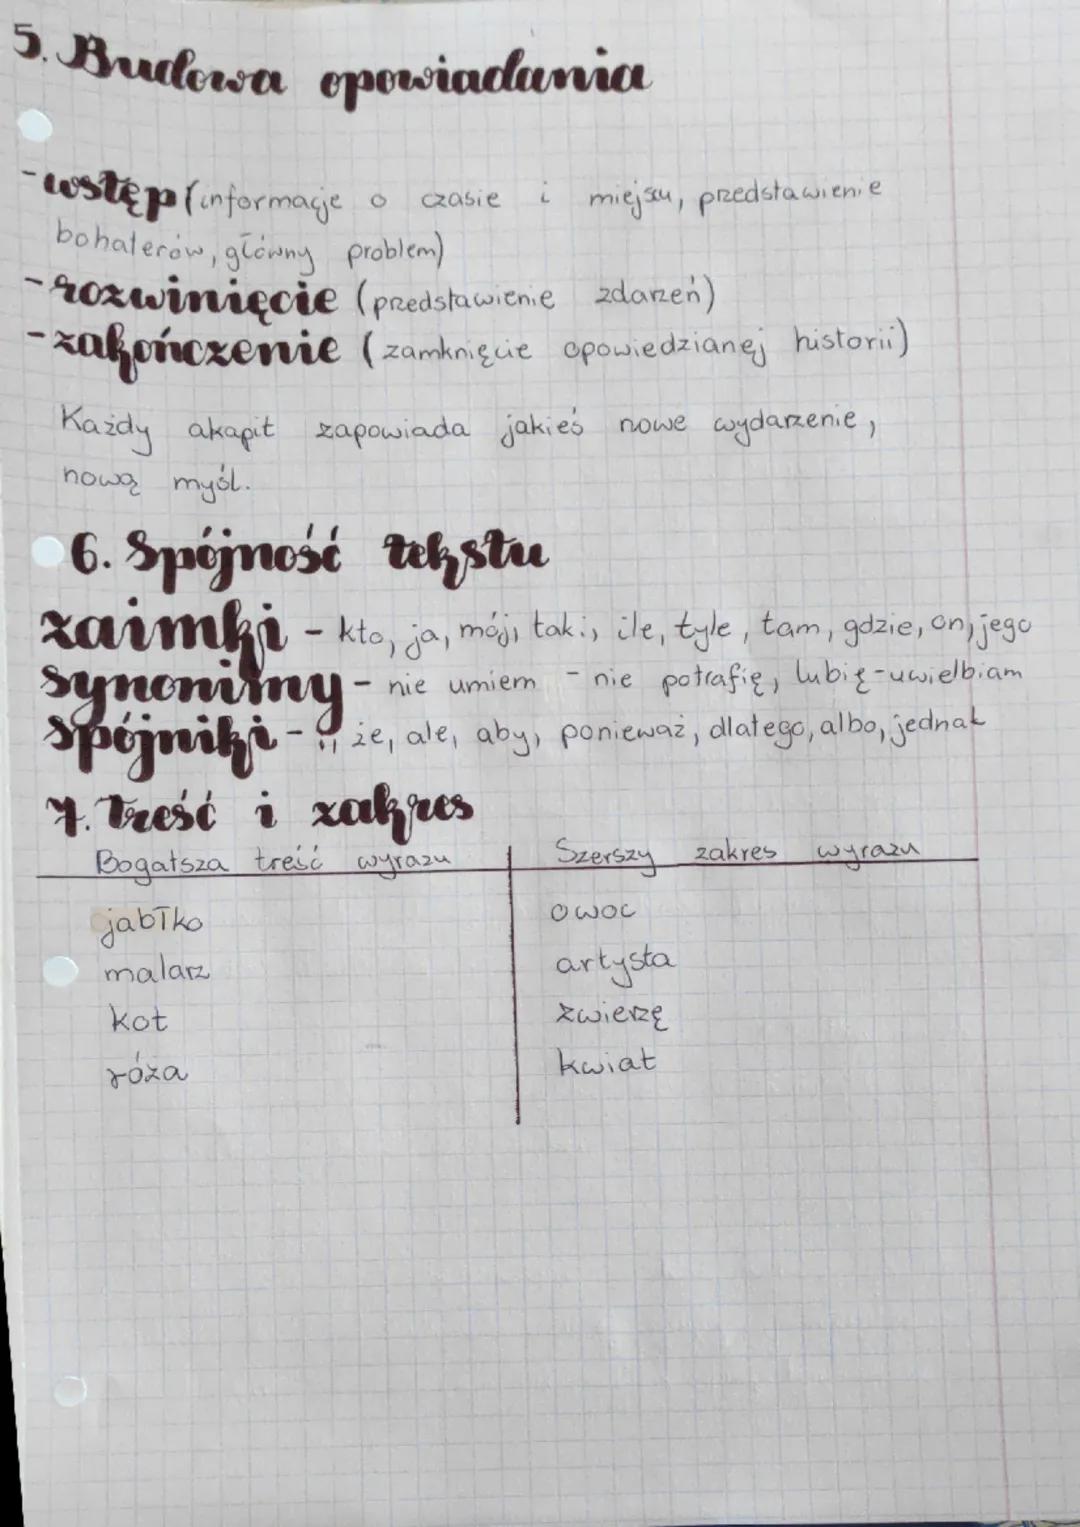 5. Budowa opowiadania
- wstęp (informacje o czasie i miejscu, przedstawienie
bohaterów, główny problem)
- rozwinięcie (przedstawienie zdarzeń)
- zakończenie (zamknięcie opowiedzianej historii)
Każdy akapit zapowiada jakieś nowe wydarzenie,
nową myśl.
6. Spójność tekstu
zaimki - kto, ja, mój, taki, ile, tyle, tam, gdzie, on, jego
synonimy - nie umiem - nie potrafię, lubię - uwielbiam
spójniki - i, że, ale, aby, ponieważ, dlatego, albo, jednak
7. Treść i zakres
Bogatsza treść wyrazu | Szerszy zakres wyrazu
jabłko owoc
malarz artysta
kot zwierzę
róża kwiat